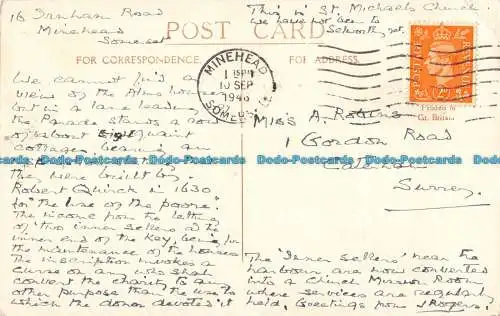 16 Dunham Road
Minehead
Somerset
This is St. Michaels Church.
We have not been to
Selworthy yet.
POST CARD
FOR CORRESPONDENCE.
FOR ADDRESS.
MINEHEAD
1 15PM
10 SEP
1946
SOMERSET
POSTAGE
REVENUE
Printed in
Gt. Britain
We cannot find a
view of the Alms houses
but in a lane leading
the Parade stands a row
of about Eight quaint
cottages bearing an
they were built by
Robert Quirck in 1630
for "the use of the poore".
The income from the letting
of "two inner sellers at the
inner end of the Key, being for
the maintenance of the houses
The inscription invokes a
curse on any who shall
convert the charity to any
other purpose than the use to
which the donor devoted it
Miss A. Robins
1 Gordon Road
Surrey.
The "Inner Sellers" near the
harbour are now converted
into a Church Mission Room
where services are regularly
held. Greetings from J Rogers.
Dodo-Postcards.com Dodo-Postcards.com Dodo-Postcards.com Dodo-Postcards.com